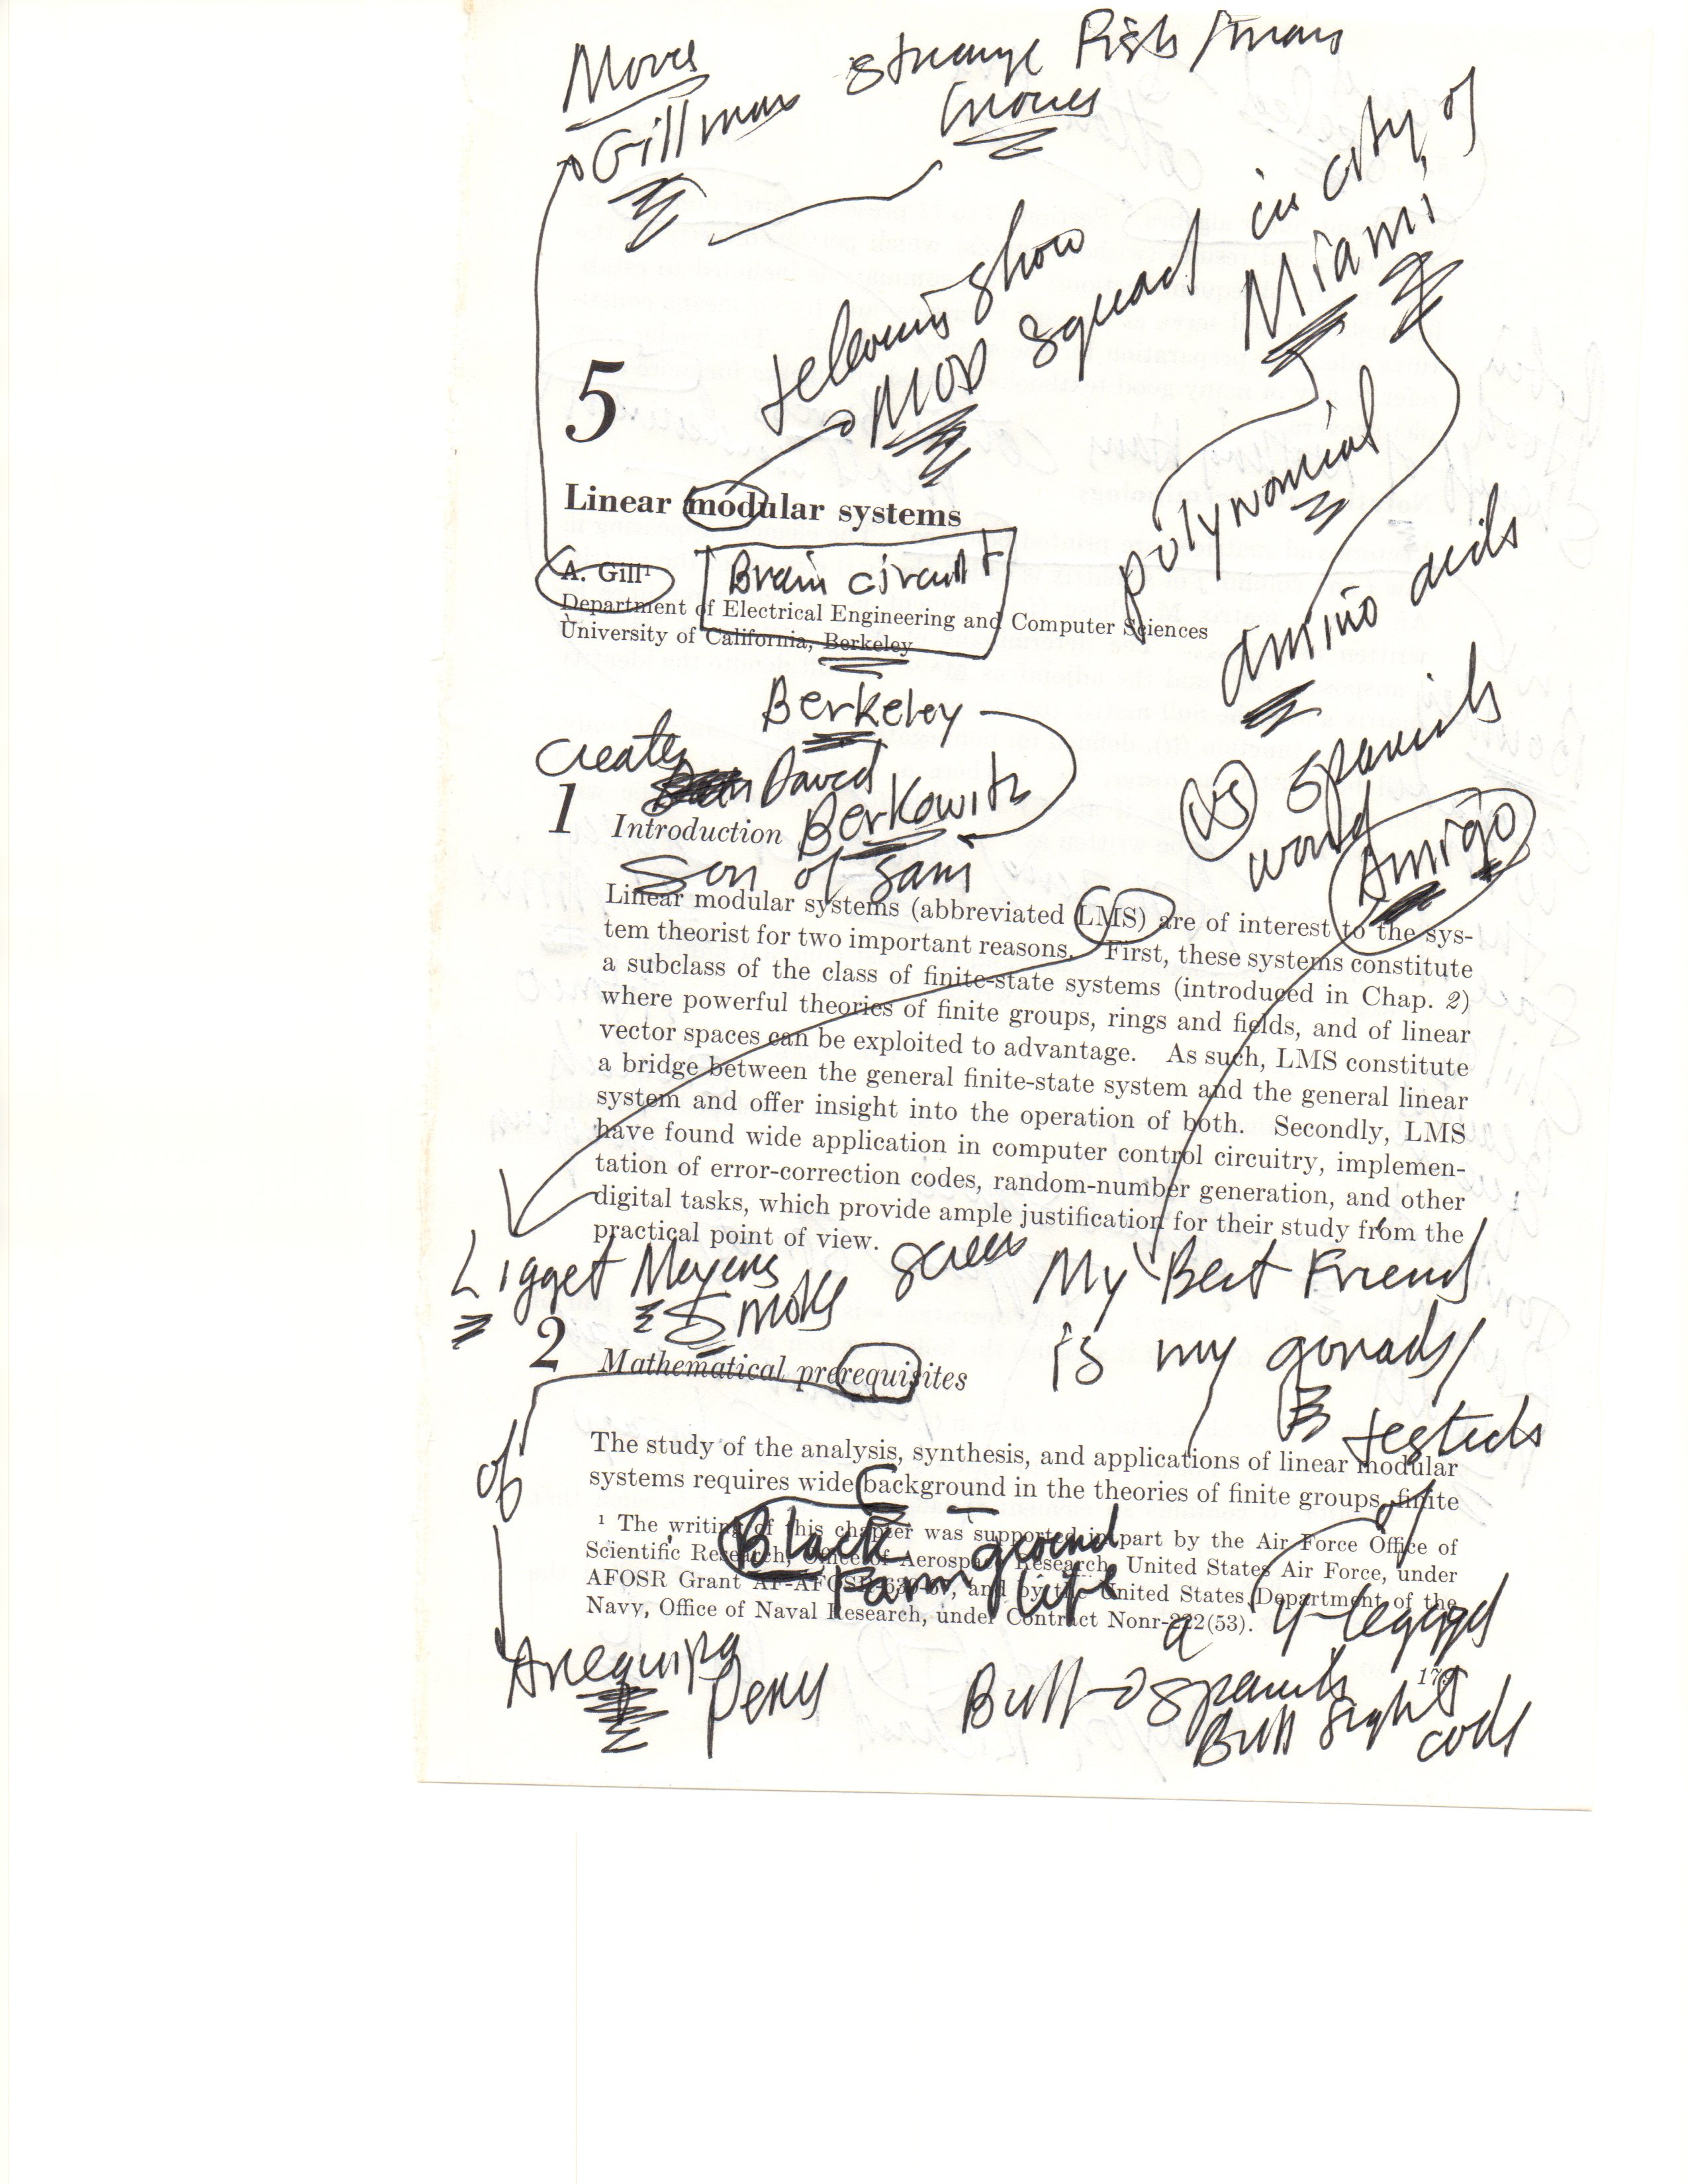 Moves
strange Fish/man
Gillman
movies
in city of
Miami
television show
MOD Squad
5
polynomial
Linear modular systems
amino acids
A. Gill¹
Brain circuit
Department of Electrical Engineering and Computer Sciences
University of California, Berkeley
Berkeley
creates
David
1
Introduction
Berkowitz
Son of Sam
VS spanish
word
Amigo
Linear modular systems (abbreviated LMS) are of interest to the sys-
tem theorist for two important reasons. First, these systems constitute
a subclass of the class of finite-state systems (introduced in Chap. 2)
where powerful theories of finite groups, rings and fields, and of linear
vector spaces can be exploited to advantage. As such, LMS constitute
a bridge between the general finite-state system and the general linear
system and offer insight into the operation of both. Secondly, LMS
have found wide application in computer control circuitry, implemen-
tation of error-correction codes, random-number generation, and other
digital tasks, which provide ample justification for their study from the
practical point of view.
Ligget Meyers
Smoke screen
My Best Friend
is my gonads/
2
Mathematical prerequisites
of
The study of the analysis, synthesis, and applications of linear modular
systems requires wide background in the theories of finite groups, finite
of
¹ The writing of this chapter was supported in part by the Air Force Office of
Scientific Research, Office of Aerospace Research, United States Air Force, under
AFOSR Grant AF-AFOSR-639-67, and by the United States Department of the
Navy, Office of Naval Research, under Contract Nonr-222(53).
Black ground
Farm life
a 4-legged
Arequipa
Peru
Bull spanish
Bull fight
code